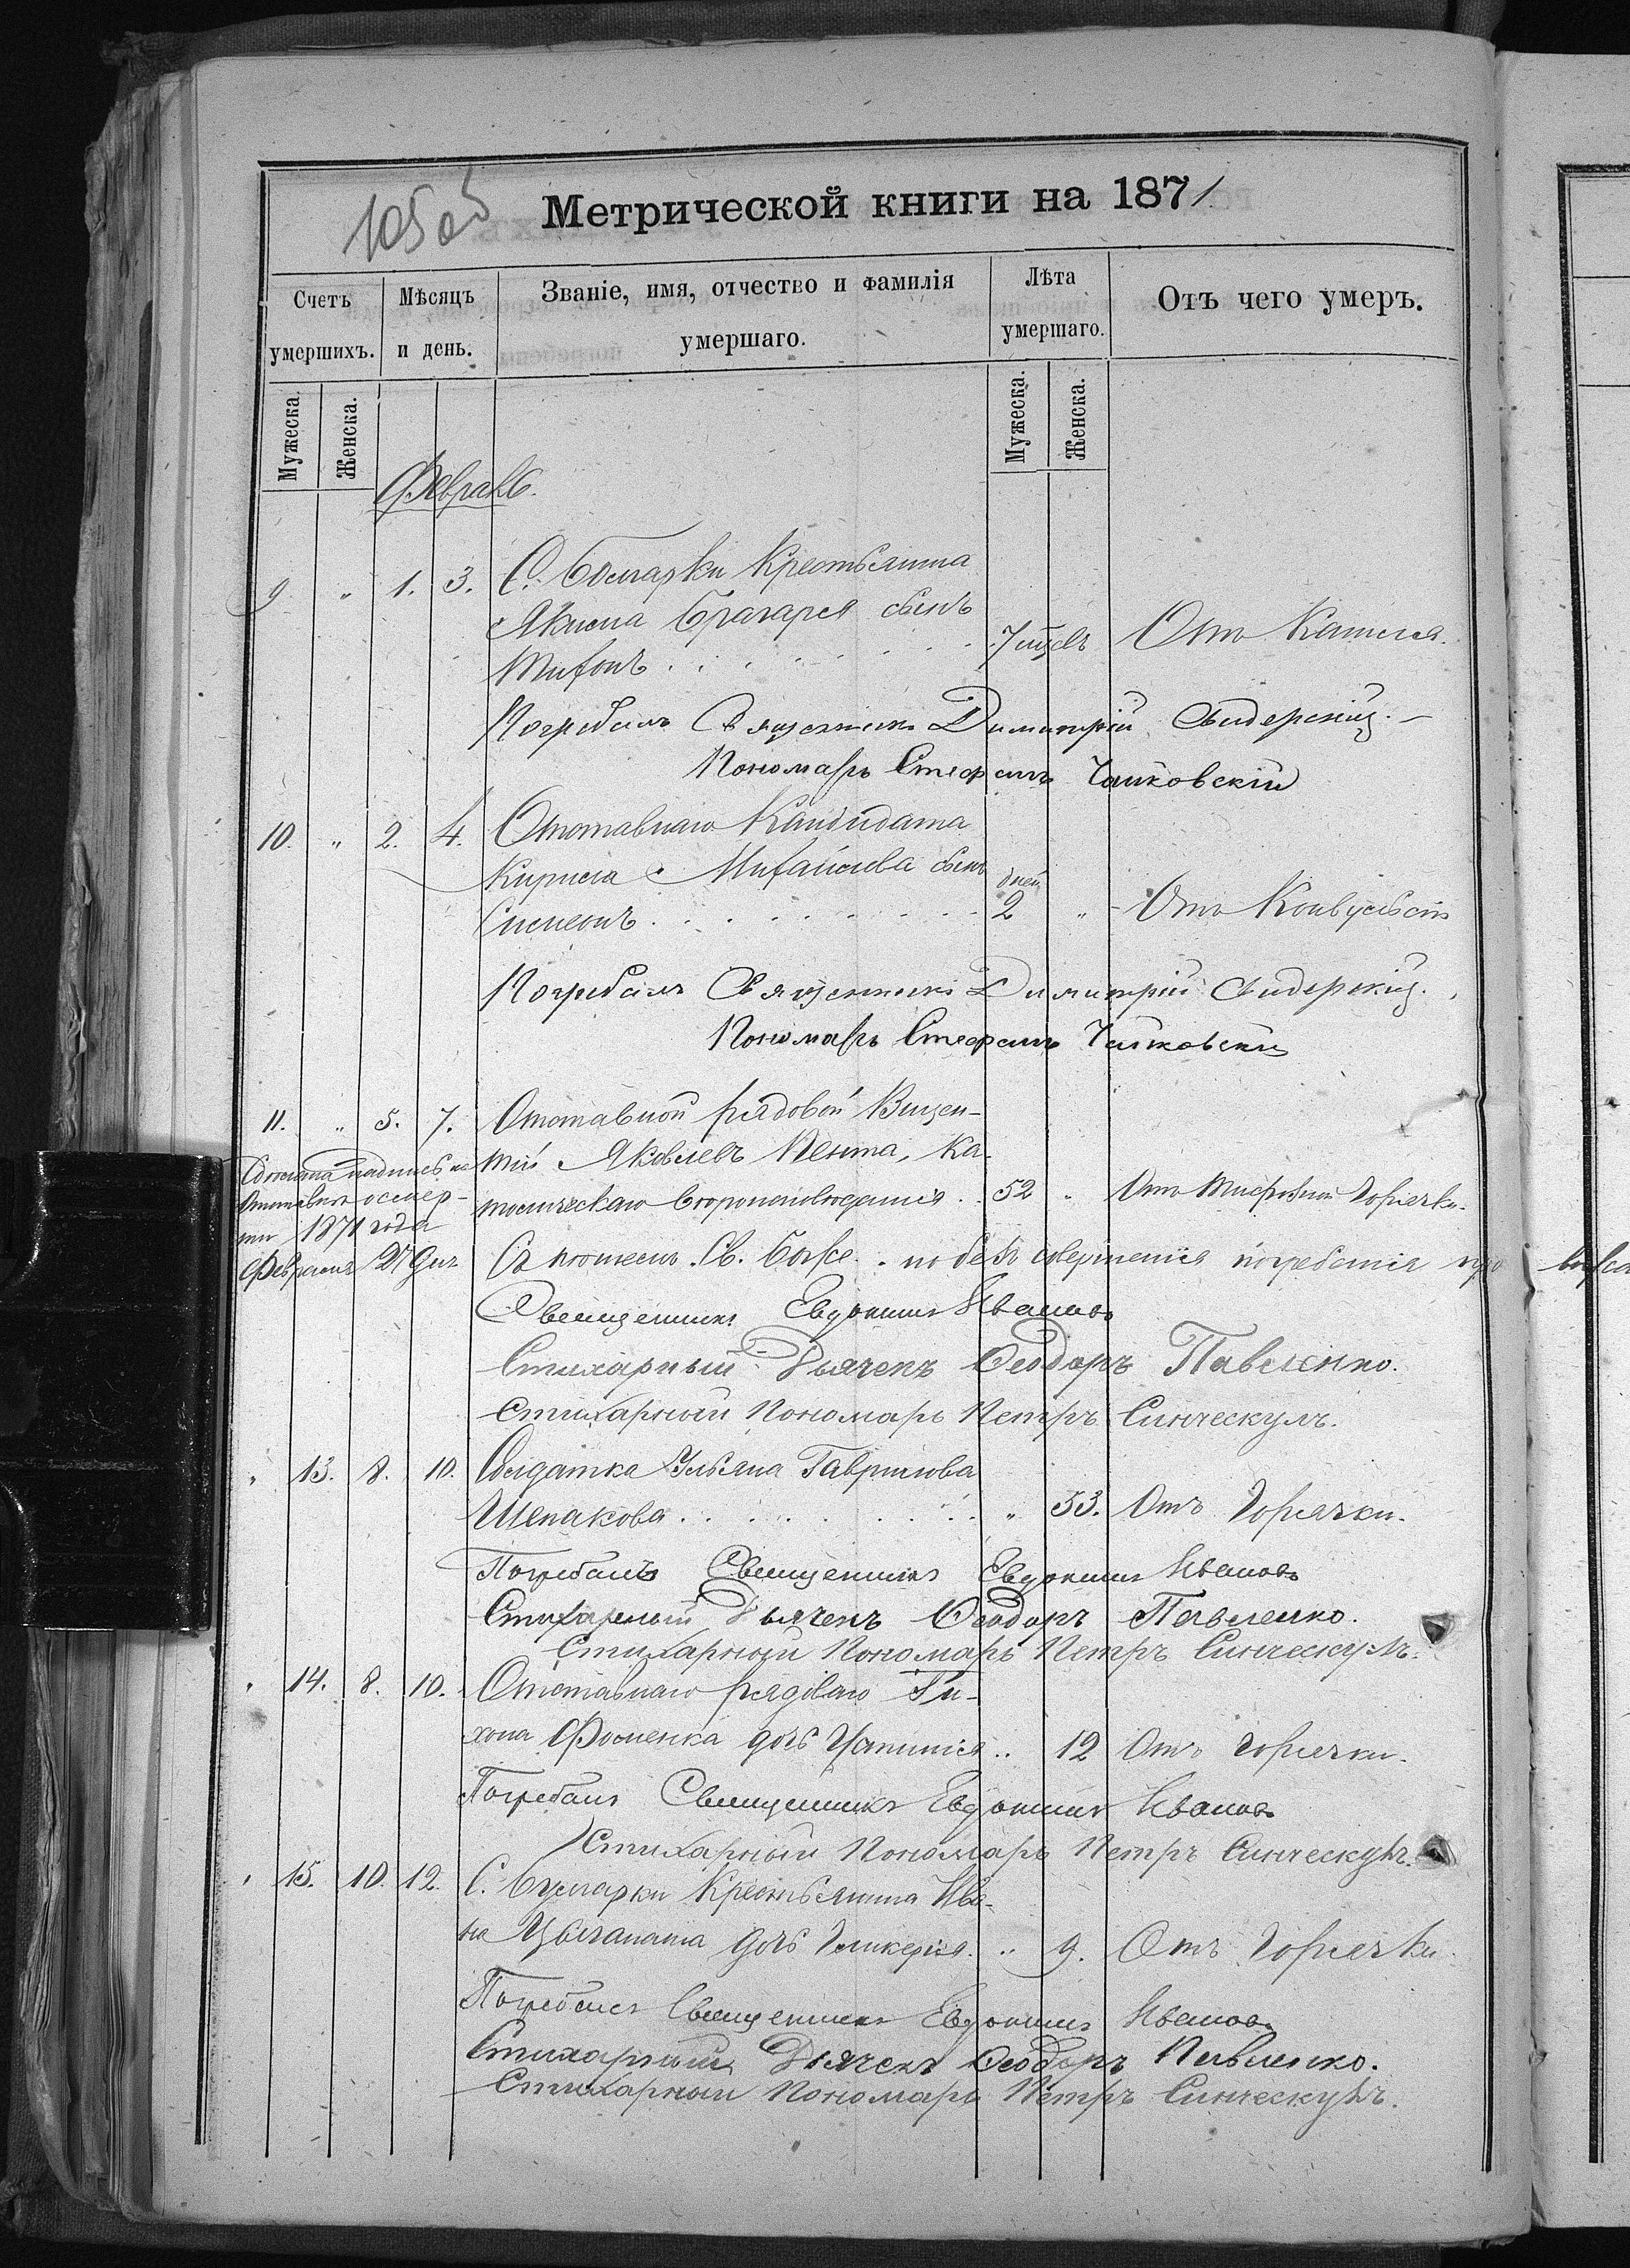 105об
Метрической книги на 1871
Счетъ умершихъ.
Мѣсяцъ и день.
Званіе, имя, отчество и фамилія умершаго.
Лѣта умершаго.
Отъ чего умеръ.
Мужеска. Женска.
Мужеска. Женска.
Февраль.
9 " 1. 3. С. Болгарки Крестьянина
Якима сынъ
Отъ Кашля.
Погребалъ Священникъ Димитрій Свидерскій. –
Пономарь Стефанъ Чайковскій
10. " 2. 4. Отставнаго Кандидата
Кирила Михайлова сынъ
дней
Симеонъ 2 " Отъ Конвульсіи
Погребалъ Священникъ Димитрій Свидерскій.
Пономарь Стефанъ Чайковскій
11. " 5. 7. Отставной рядовой Викен-
тій Яковлевъ Пента, Ка-
толическаго вероисповѣданія . 52 " Отъ Тифозной Горячки.
надпись на
отставкѣ о смер-
ти 1871 года
Февраля 27 дня
Съ пѣніемъ Св. Боже . но безъ совершенія погребенія
Священникъ Евдокимъ Ивановъ
Стихарный Дьячекъ Феодоръ Павленко.
Стихарный Пономарь Петръ Синческулъ.
" 13. 8. 10. Солдатка Ульяна Гаврилова
Шепакова " 53. Отъ Горячки.
Погребалъ Священникъ Евдокимъ Ивановъ
Стихарный Дьячекъ Феодоръ Павленко.
Стихарный Пономарь Петръ Синческулъ.
" 14. 8. 10. Отставнаго рядоваго Ти-
хона Фоменка дочь .. 12 Отъ горячки.
Погребалъ Священникъ Евдокимъ Ивановъ
Стихарный Пономарь Петръ Синческулъ.
" 15. 10. 12. С. Булгарки Крестьянина Ива-
на дочь Гликерія . " 9. Отъ Горячки.
Погребалъ Священникъ Евдокимъ Ивановъ
Стихарный Дьячекъ Феодоръ Павленко.
Стихарный Пономарь Петръ Синческулъ.